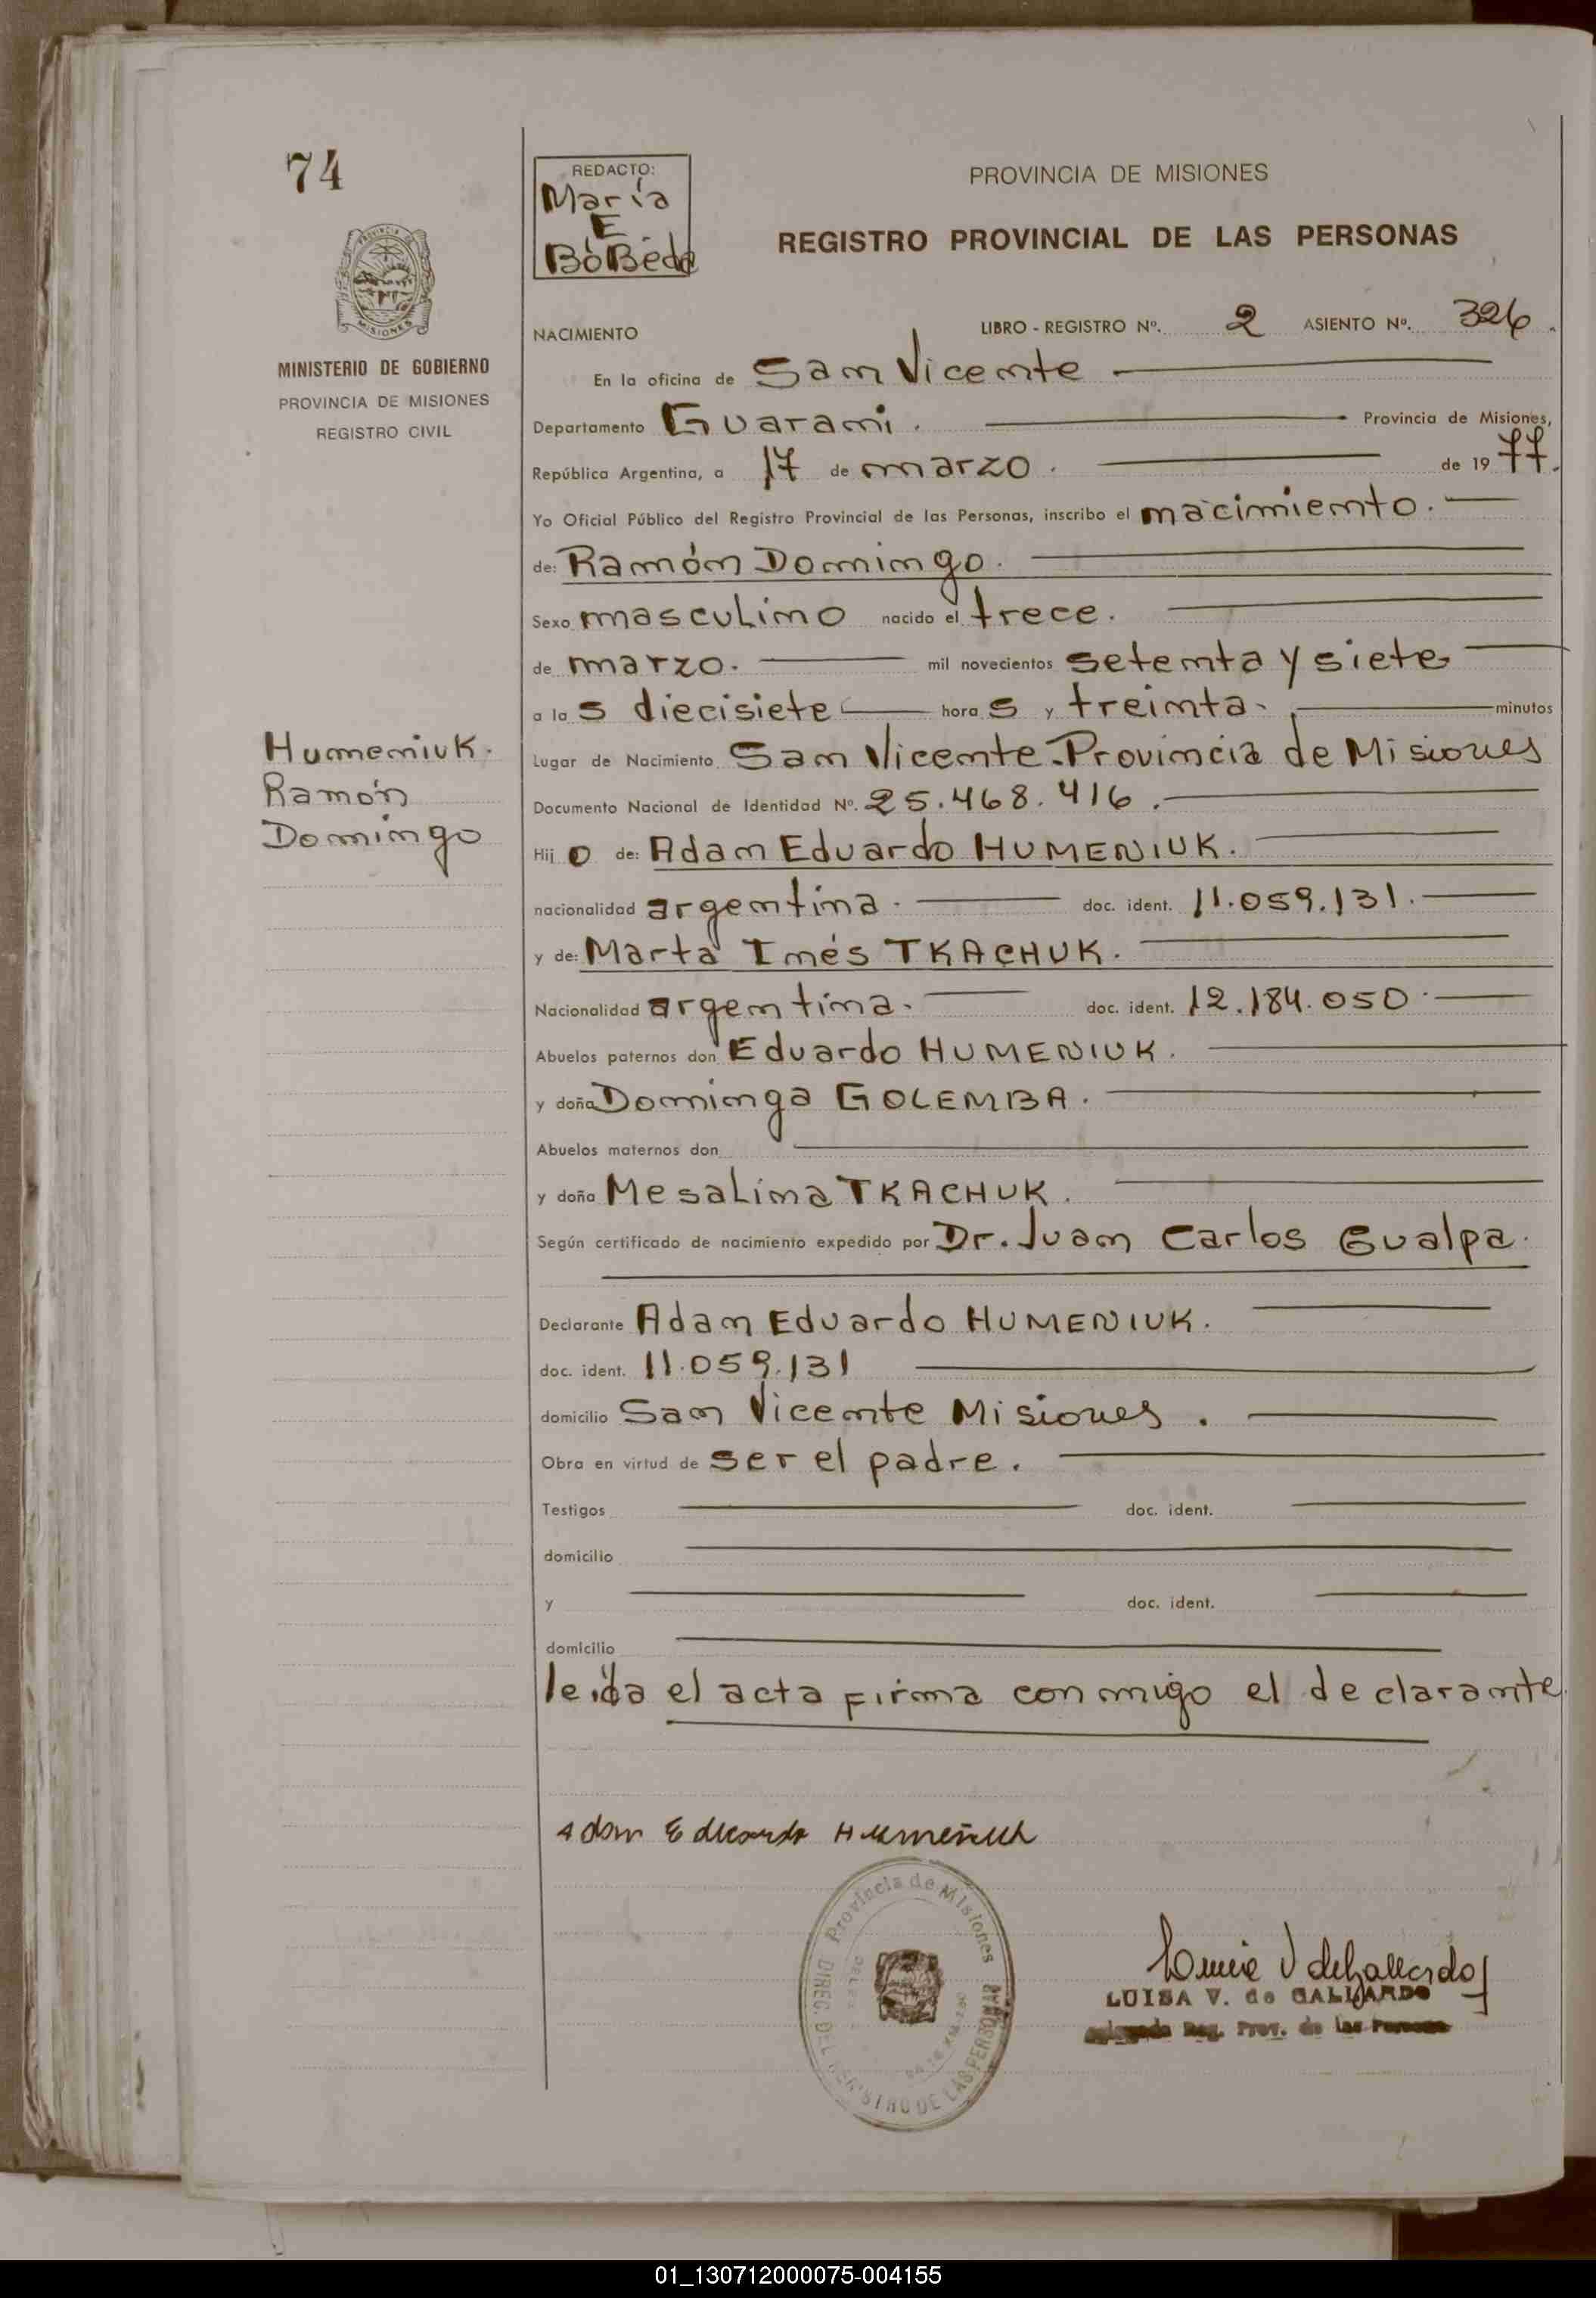 74
REDACTO:
María
E.
BóBeda
PROVINCIA DE MISIONES
REGISTRO PROVINCIAL DE LAS PERSONAS
MINISTERIO DE GOBIERNO
PROVINCIA DE MISIONES
REGISTRO CIVIL
NACIMIENTO LIBRO - REGISTRO Nº. 2 ASIENTO Nº. 326.
En la oficina de San Vicente
Departamento Guarani. Provincia de Misiones,
República Argentina, a 17 de marzo. de 1977.
Yo Oficial Público del Registro Provincial de las Personas, inscribo el nacimiento.
de: Ramón Domingo.
Sexo masculino nacido el trece.
de marzo. mil novecientos setenta y siete
a las diecisiete horas y treinta. minutos
Humeniuk.
Ramón
Domingo
Lugar de Nacimiento San Vicente. Provincia de Misiones
Documento Nacional de Identidad Nº. 25.468.416.
Hijo de: Adam Eduardo HUMENIUK.
nacionalidad argentina. doc. ident. 11.059.131.
y de: Marta Inés TKACHUK.
Nacionalidad argentina. doc. ident. 12.184.050.
Abuelos paternos don Eduardo HUMENIUK.
y doña Dominga GOLEMBA.
Abuelos maternos don
y doña Mesalina TKACHUK.
Según certificado de nacimiento expedido por Dr. Juan Carlos Gualpa.
Declarante Adam Eduardo HUMENIUK.
doc. ident. 11.059.131
domicilio San Vicente Misiones.
Obra en virtud de ser el padre.
Testigos doc. ident.
domicilio
y doc. ident.
domicilio
leída el acta firma conmigo el declarante.
Adam Eduardo Humeniuk
Provincia de Misiones
DIREC. DEL REGISTRO DE LAS PERSONAS
LUISA V. de GALLARDO
Delegada Reg. Prov. de las Personas
01_130712000075-004155